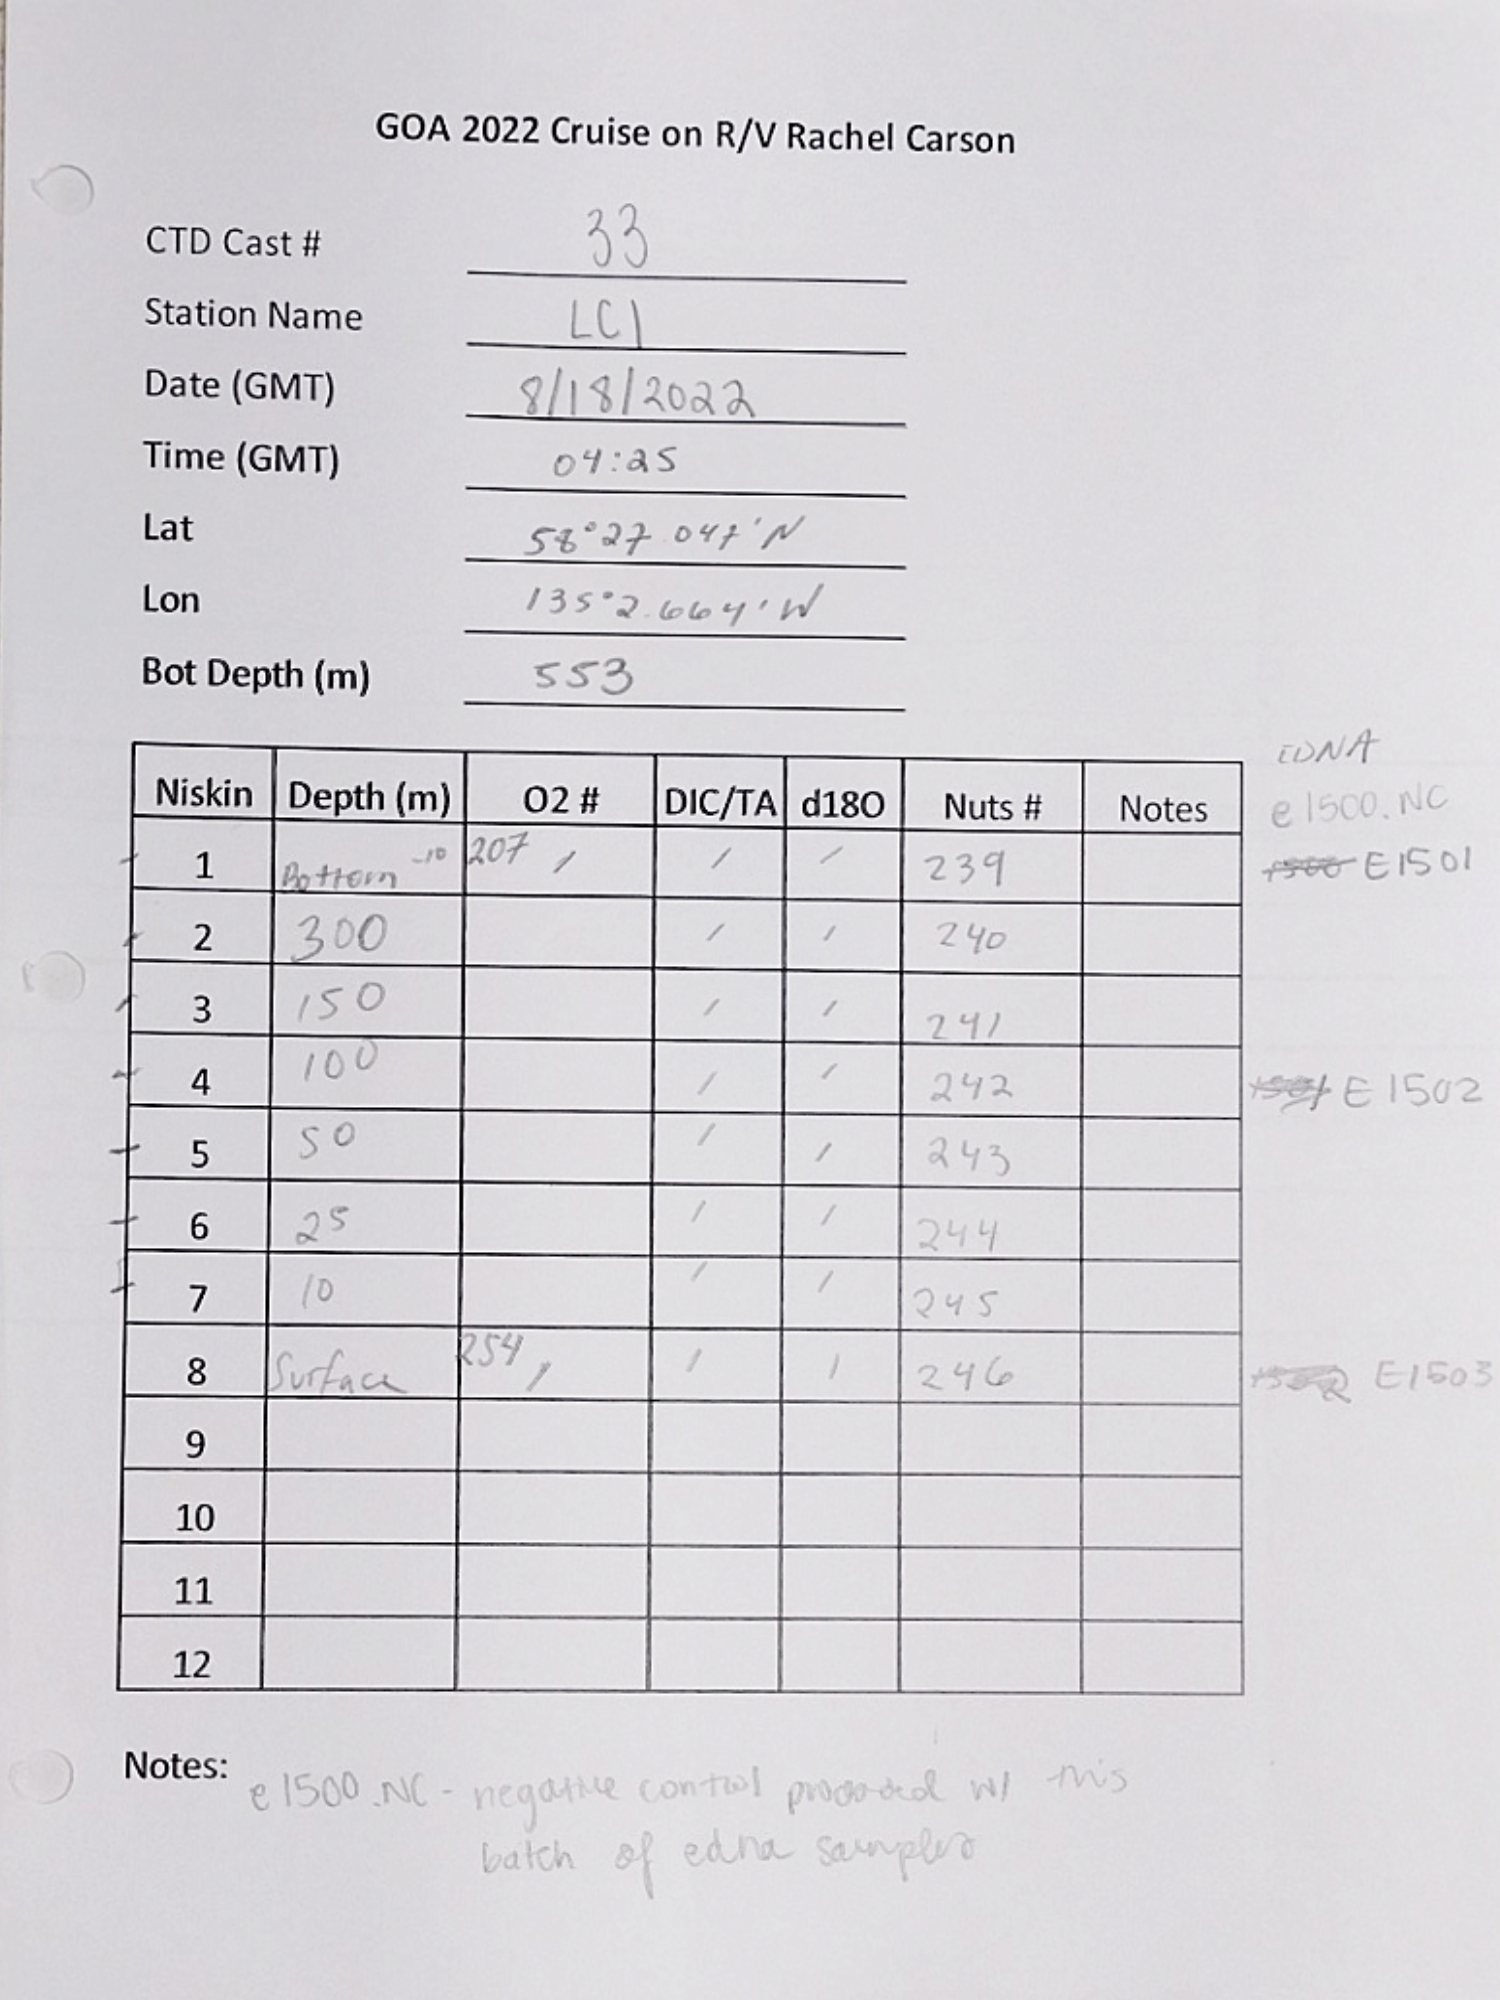 GOA 2022 Cruise on R/V Rachel Carson
CTD Cast # 33
Station Name LC1
Date (GMT) 8/18/2022
Time (GMT) 04:25
Lat 58°27.047'N
Lon 135°2.664'W
Bot Depth (m) 553
EDNA
Niskin Depth (m) O2 # DIC/TA d18O Nuts # Notes e1500.NC
1 Bottom -10 207 / / / 239 E1501
2 300 / / 240
3 150 / / 241
4 100 / / 242 E1502
5 50 / / 243
6 25 / / 244
7 10 / / 245
8 Surface 254 / / / 246 E1503
9
10
11
12
Notes: e1500.NC - negative control processed w/ this
batch of edna samples